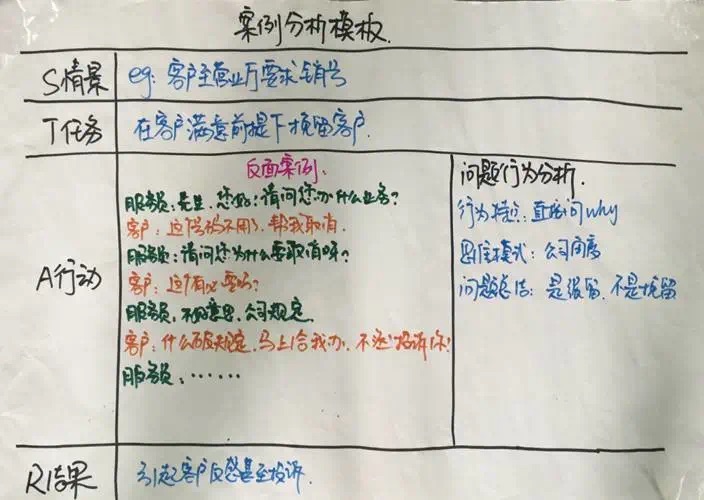 案例分析模板
S情景
eg: 客户至营业厅要求销号
T任务
在客户满意前提下挽留客户.
A行动
反面案例:
服务员: 先生, 您好! 请问您办什么业务?
客户: 这号码不用了, 帮我取消.
服务员: 请问您为什么要取消呀?
客户: 这有必要吗?
服务员: 不好意思, 公司规定.
客户: 什么破规定, 马上给我办, 不然投诉你!
服务员: ······
问题行为分析.
行为特点: 直接问why
思维模式: 公司角度
问题总结: 是强留, 不是挽留
R结果
引起客户反感甚至投诉.